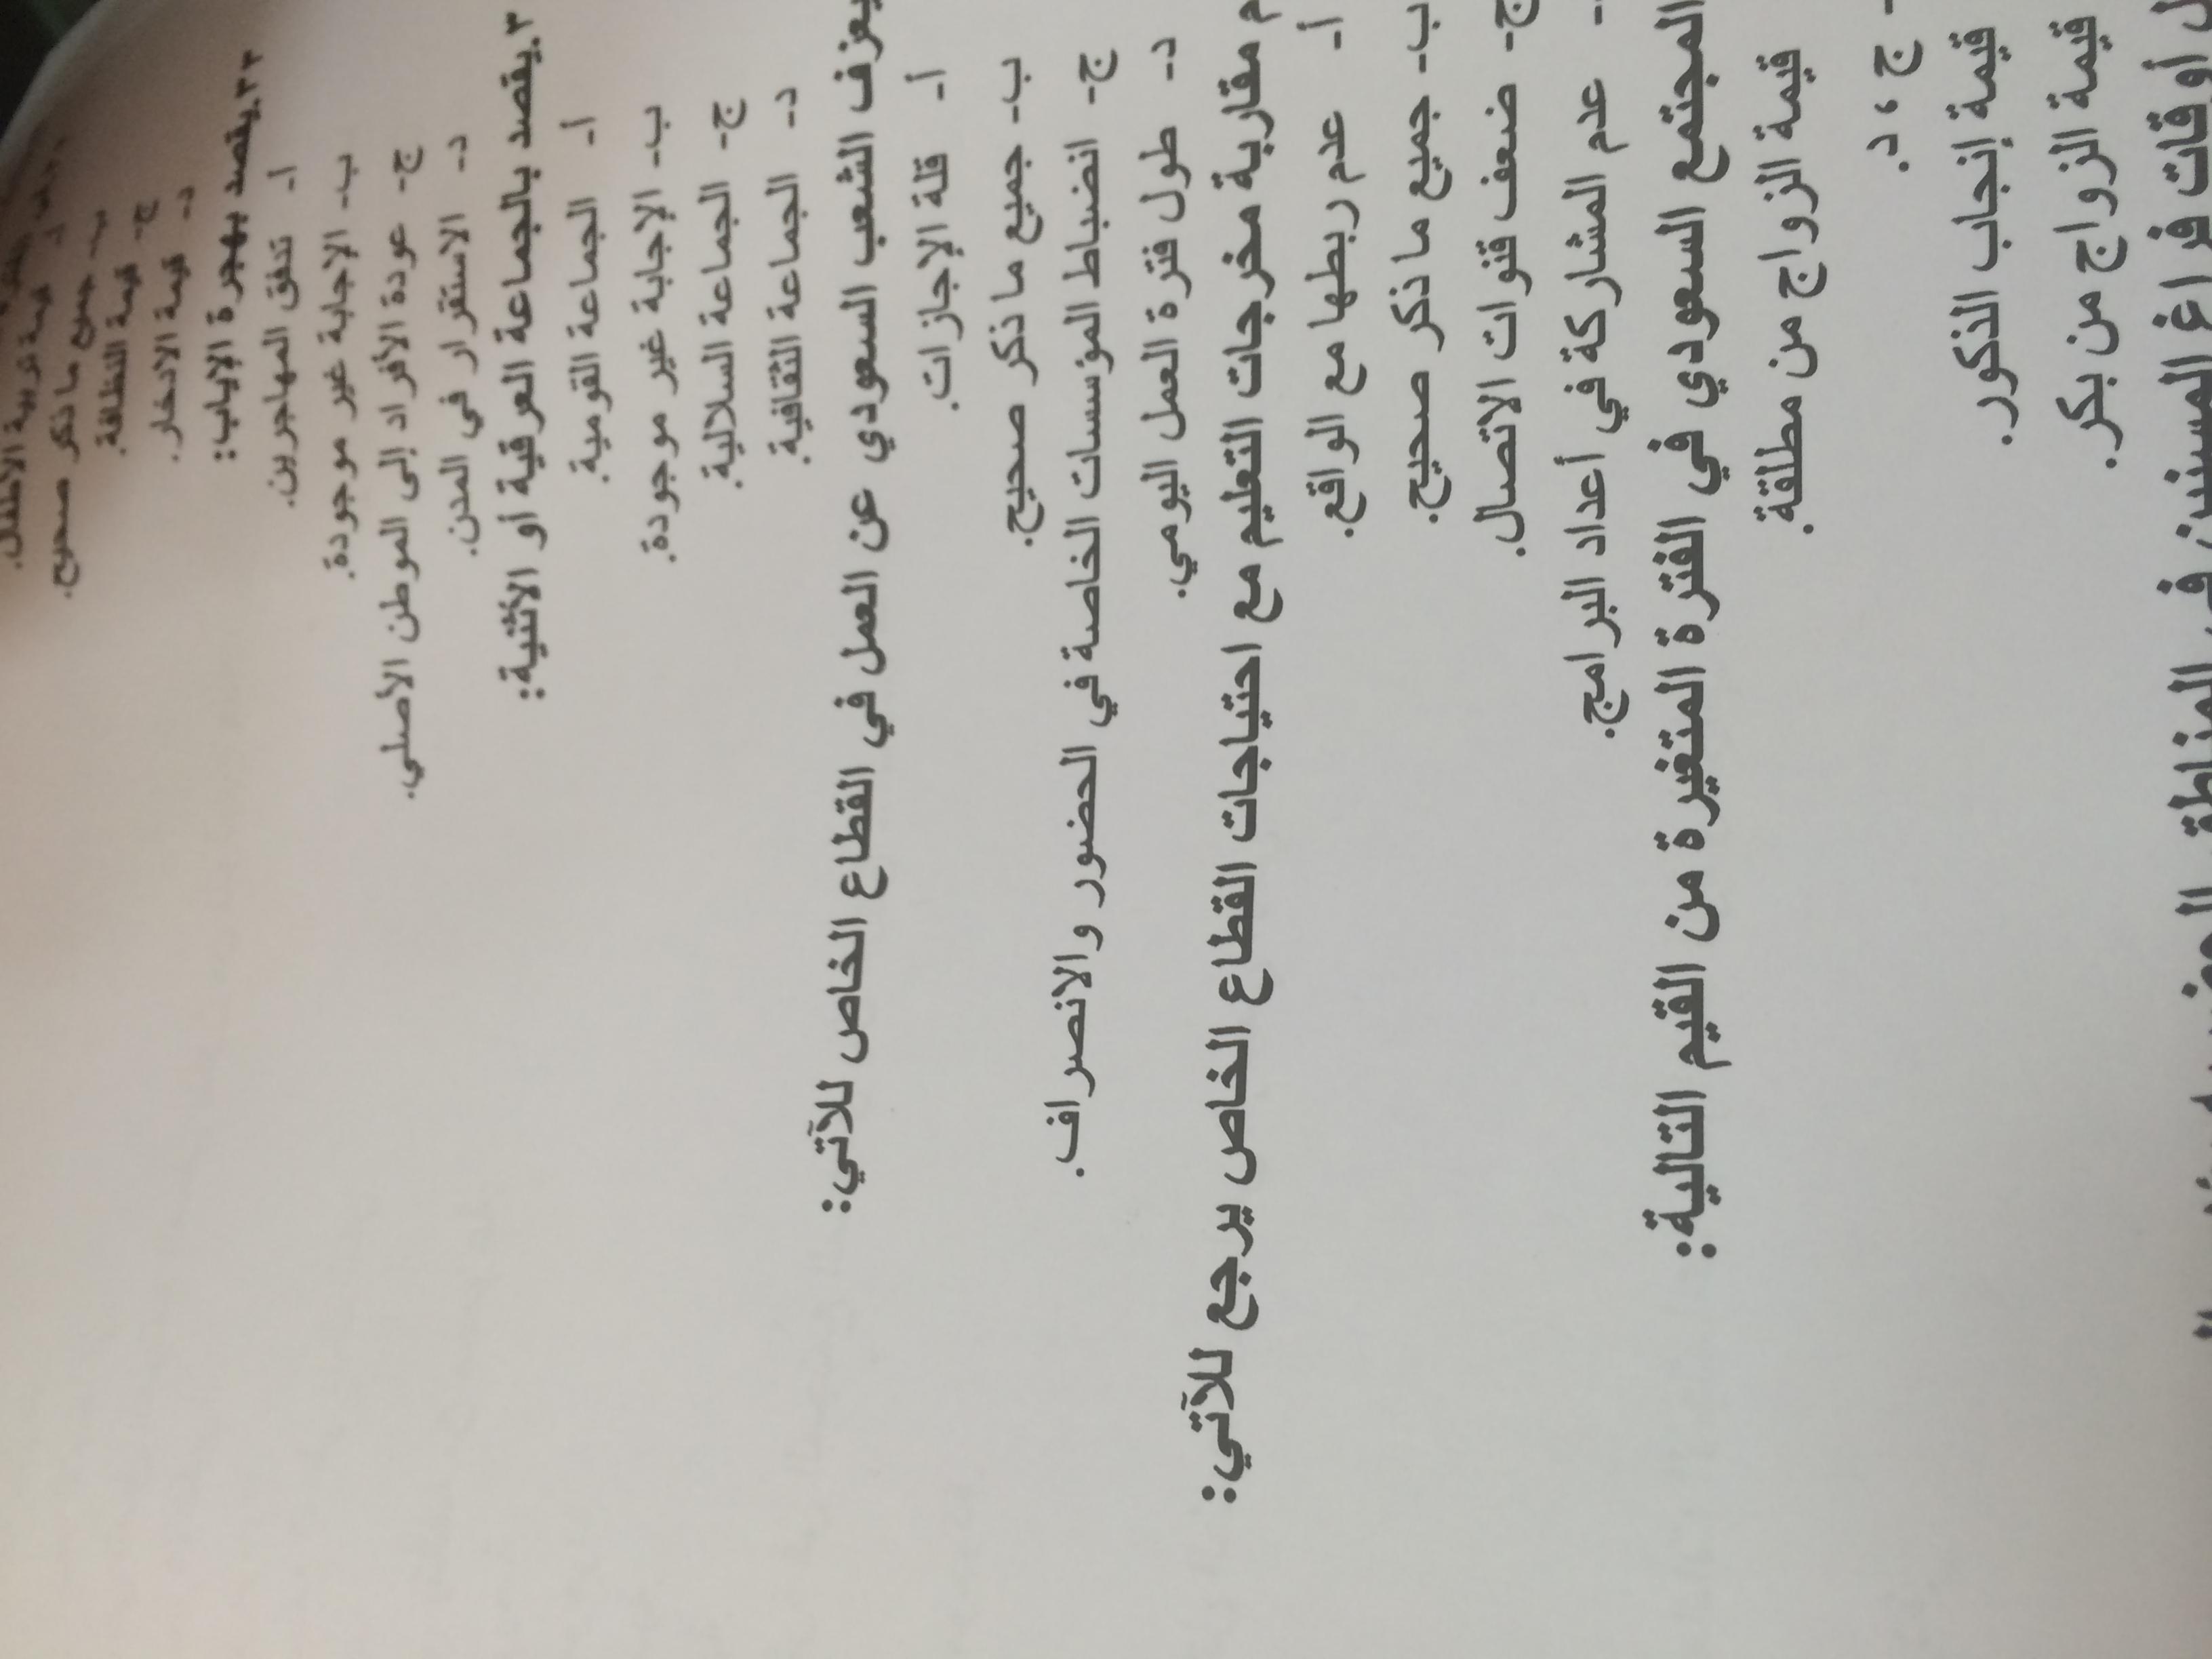 تربية الأطفال.
ب- جميع ما ذكر صحيح.
ج- قيمة النظافة.
د- قيمة الادخار.
يقصد بهجرة الإياب:
أ- تدفق المهاجرين.
ب- الإجابة غير موجودة.
ج- عودة الأفراد إلى الموطن الأصلي.
د- الاستقرار في المدن.
يقصد بالجماعة العرقية أو الأثنية:
أ- الجماعة القومية.
ب- الإجابة غير موجودة.
ج- الجماعة السلالية.
د- الجماعة الثقافية.
يعزف الشعب السعودي عن العمل في القطاع الخاص للآتي:
أ- قلة الإجازات.
ب- جميع ما ذكر صحيح.
ج- انضباط المؤسسات الخاصة في الحضور والانصراف.
د- طول فترة العمل اليومي.
مقاربة مخرجات التعليم مع احتياجات القطاع الخاص يرجع للآتي:
أ- عدم ربطها مع الواقع.
ب- جميع ما ذكر صحيح.
ج- ضعف قنوات الاتصال.
- عدم المشاركة في أعداد البرامج.
المجتمع السعودي في الفترة المتغيرة من القيم التالية:
قيمة الزواج من مطلقة.
- ج ، د.
قيمة إنجاب الذكور.
قيمة الزواج من بكر.
أوقات فراغ المسنين في المناطق